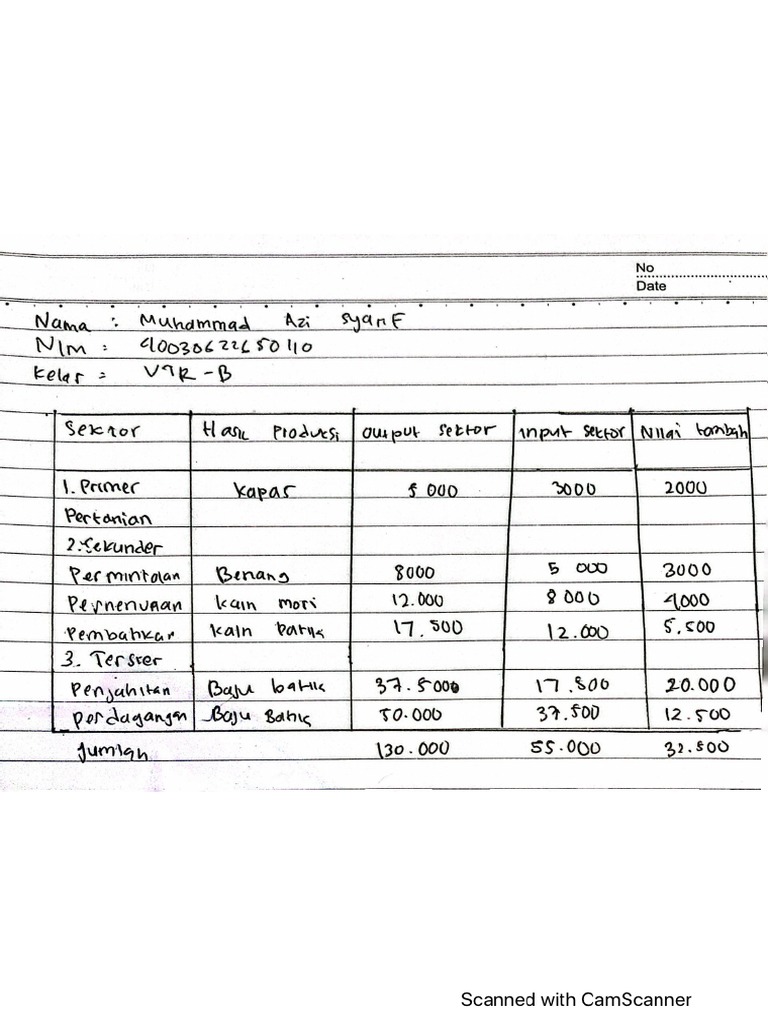 No
Date
Nama : Muhammad Azi Syarif
NIM : 40030622650110
Kelas : VTR-B
Sektor Hasil Produksi Output Sektor Input Sektor Nilai tambah
1. Primer Kapas 5 000 3000 2000
Pertanian
2. Sekunder
Permintalan Benang 8000 5 000 3000
Pernenunan kain mori 12.000 8 000 4000
Pembatikan kain batik 17.500 12.000 5.500
3. Tersier
Penjahitan Baju batik 37.5000 17.500 20.000
Perdagangan Baju Batik 50.000 37.500 12.500
Jumlah 130.000 55.000 32.500
Scanned with CamScanner